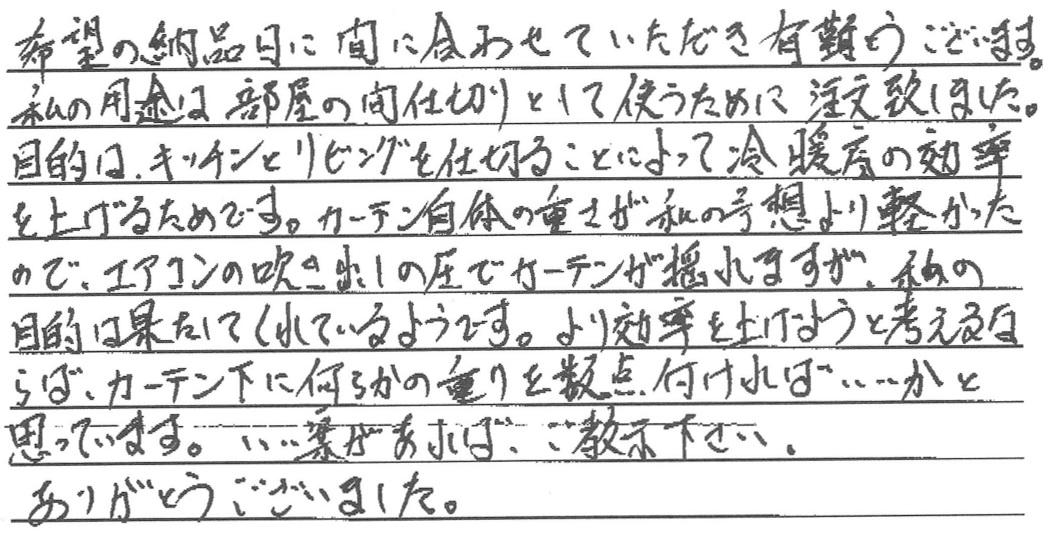 希望の納品日に間に合わせていただき有難うございます。
私の用途は部屋の間仕切りとして使うために注文致しました。
目的は、キッチンとリビングを仕切ることによって冷暖房の効率
を上げるためです。カーテン自体の重さが私の予想より軽かった
ので、エアコンの吹き出しの圧でカーテンが揺れますが、私の
目的は果たしてくれているようです。より効率を上げようと考えるな
らば、カーテン下に何らかの重りを数点付ければ‥‥かと
思っています。いい案があれば、ご教示下さい。
ありがとうございました。